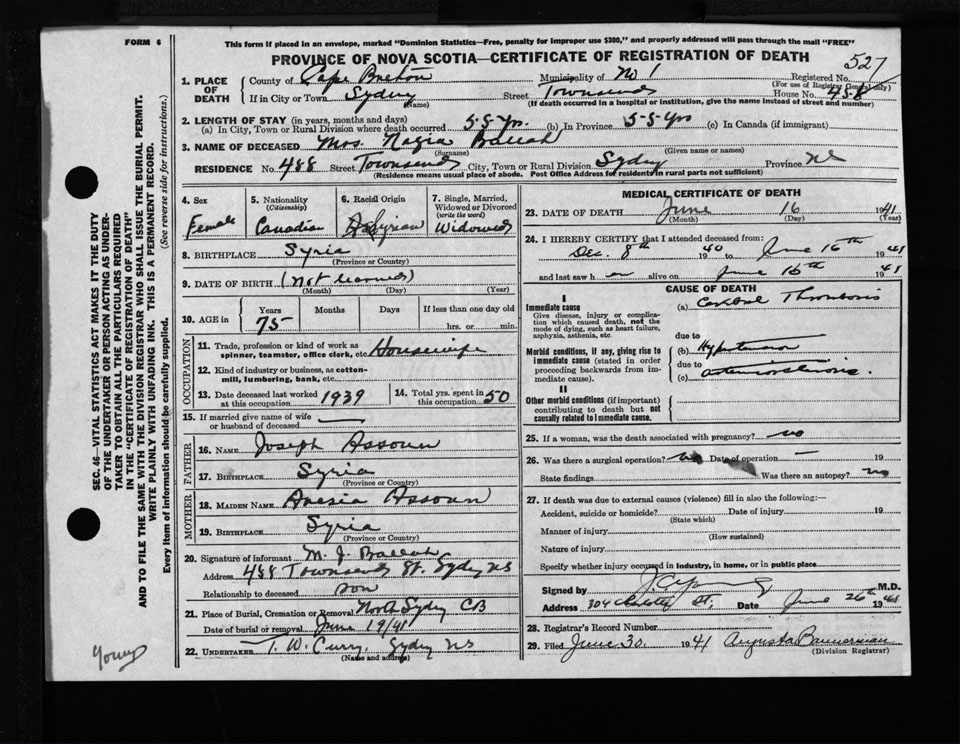 FORM 6
This form if placed in an envelope, marked "Dominion Statistics—Free, penalty for improper use $300," and properly addressed will pass through the mail "FREE"
PROVINCE OF NOVA SCOTIA—CERTIFICATE OF REGISTRATION OF DEATH
527
1. PLACE OF DEATH
County of Cape Breton Municipality of No 1 Registered No.
(For use of Registrar General only)
If in City or Town Sydney Street Townsend House No. 458
(Name) (If death occurred in a hospital or institution, give the name instead of street and number)
2. LENGTH OF STAY (in years, months and days)
(a) In City, Town or Rural Division where death occurred 55 yrs. (b) In Province 55 yrs (c) In Canada (if immigrant)
3. NAME OF DECEASED Mrs. Nazira Ballah
(Surname) (Given name or names)
RESIDENCE No. 488 Street Townsend City, Town or Rural Division Sydney Province NS
(Residence means usual place of abode. Post Office Address for residents in rural parts not sufficient)
4. Sex Female
5. Nationality (Citizenship) Canadian
6. Racial Origin Assyrian
7. Single, Married, Widowed or Divorced (write the word) Widowed
8. BIRTHPLACE Syria
(Province or Country)
9. DATE OF BIRTH (Not learned)
(Month) (Day) (Year)
10. AGE in Years Months Days If less than one day old
75 hrs. or min.
OCCUPATION
11. Trade, profession or kind of work as spinner, teamster, office clerk, etc. Housewife
12. Kind of industry or business, as cotton-mill, lumbering, bank, etc.
13. Date deceased last worked at this occupation 1939
14. Total yrs. spent in this occupation 50
15. If married give name of wife or husband of deceased
FATHER
16. NAME Joseph Assoun
17. BIRTHPLACE Syria
(Province or Country)
MOTHER
18. MAIDEN NAME Assoun
19. BIRTHPLACE Syria
(Province or Country)
20. Signature of informant M. J. Ballah
Address 488 Townsend St. Sydney NS
Relationship to deceased son
21. Place of Burial, Cremation or Removal North Sydney CB
Date of burial or removal June 19/41
22. UNDERTAKER T. W. Curry, Sydney NS
(Name and address)
MEDICAL CERTIFICATE OF DEATH
23. DATE OF DEATH June 16 1941
(Month) (Day) (Year)
24. I HEREBY CERTIFY that I attended deceased from:
Dec. 8th 1940 to June 16th 1941
and last saw h er alive on June 16th 1941
CAUSE OF DEATH
I
Immediate cause
Give disease, injury or complication which caused death, not the mode of dying, such as heart failure, asphyxia, asthenia, etc.
(a) Cerebral Thrombosis
due to
Morbid conditions, if any, giving rise to immediate cause (stated in order proceeding backwards from immediate cause).
(b) Hypertension
due to
(c) arteriosclerosis.
II
Other morbid conditions (if important) contributing to death but not causally related to immediate cause.
25. If a woman, was the death associated with pregnancy? no
26. Was there a surgical operation? no Date of operation — 19
State findings Was there an autopsy? no
27. If death was due to external causes (violence) fill in also the following:—
Accident, suicide or homicide? Date of injury 19
(State which)
Manner of injury
(How sustained)
Nature of injury
Specify whether injury occurred in industry, in home, or in public place
Signed by M.D.
Address 304 Charlotte St; Date June 26th 1941
28. Registrar's Record Number
29. Filed June 30. 1941 Augusta Bannerman
(Division Registrar)
SEC. 46—VITAL STATISTICS ACT MAKES IT THE DUTY
OF THE UNDERTAKER OR PERSON ACTING AS UNDER-
TAKER TO OBTAIN ALL THE PARTICULARS REQUIRED
IN THE "CERTIFICATE OF REGISTRATION OF DEATH"
AND TO FILE THE SAME WITH THE DIVISION REGISTRAR WHO SHALL ISSUE THE BURIAL PERMIT.
WRITE PLAINLY WITH UNFADING INK. THIS IS A PERMANENT RECORD.
Every item of information should be carefully supplied. (See reverse side for instructions.)
Young